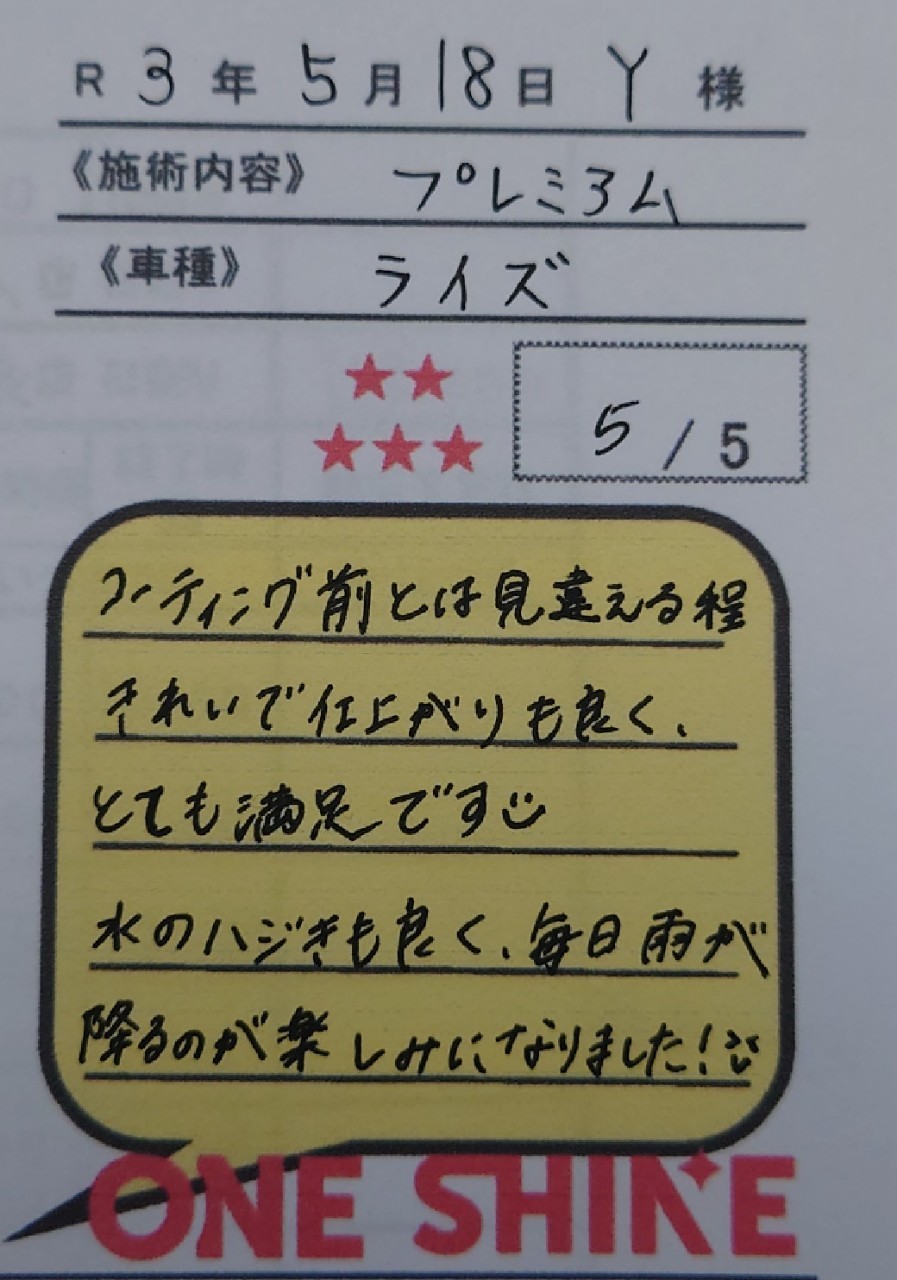 R 3 年 5 月 18 日 Y 様
《施術内容》 プレミアム
《車種》 ライズ
5 / 5
コーティング前とは見違える程
きれいで仕上がりも良く、
とても満足です
水のハジきも良く、毎日雨が
降るのが楽しみになりました!
ONE SHINE